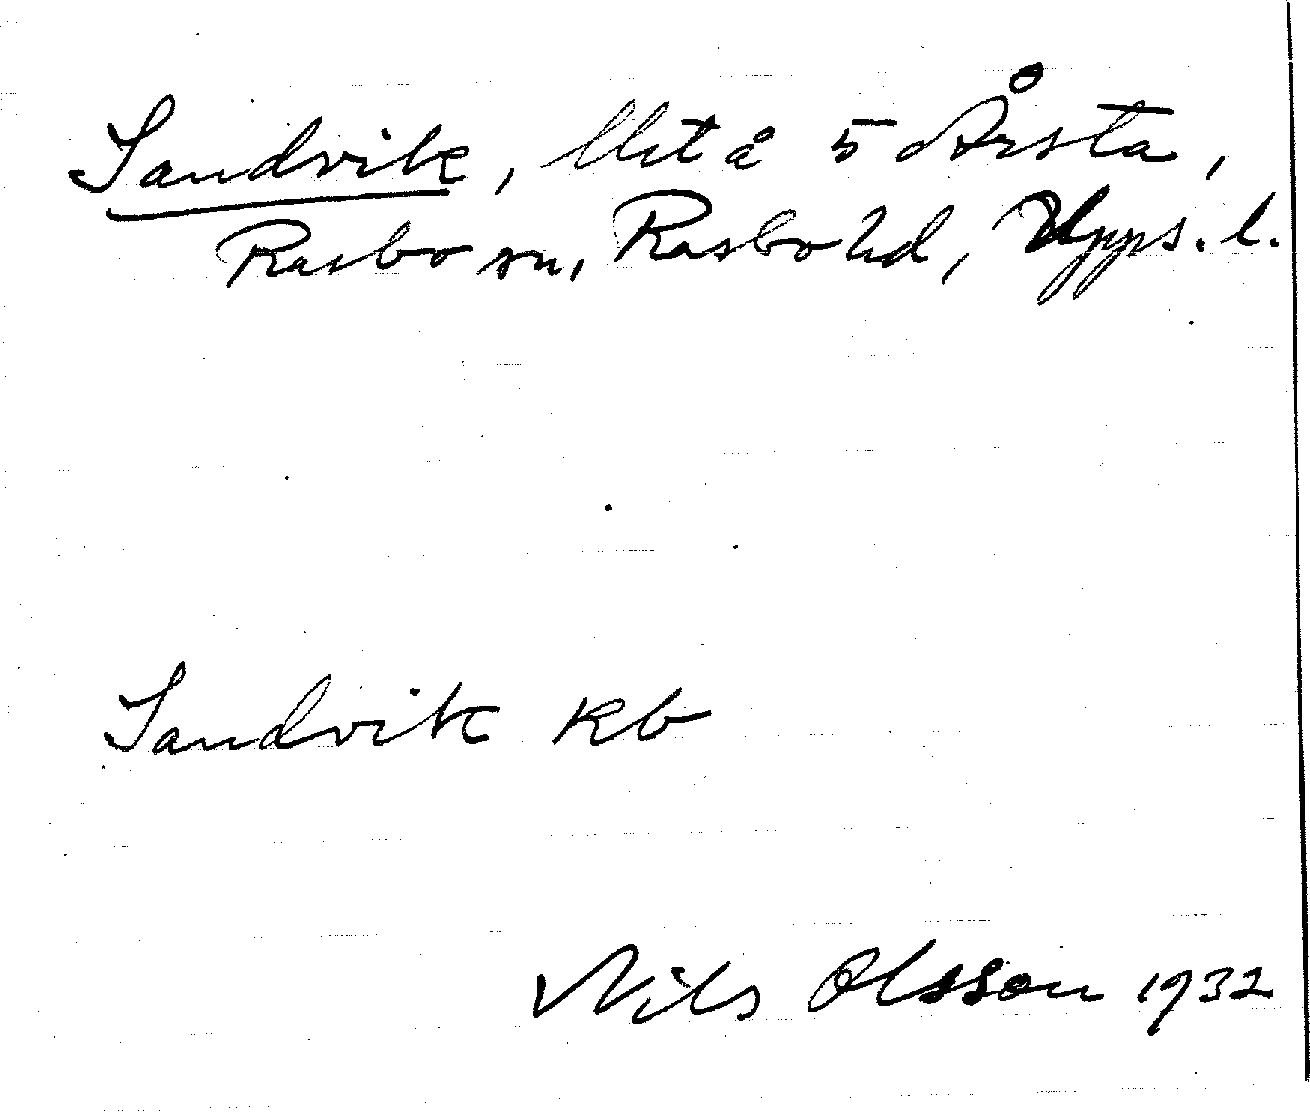 Sandvik, Utå 5 Årsta,
Rasbo sn, Rasbo hd, Upps. l.
Sandvik Kb
Nils Olsson 1932